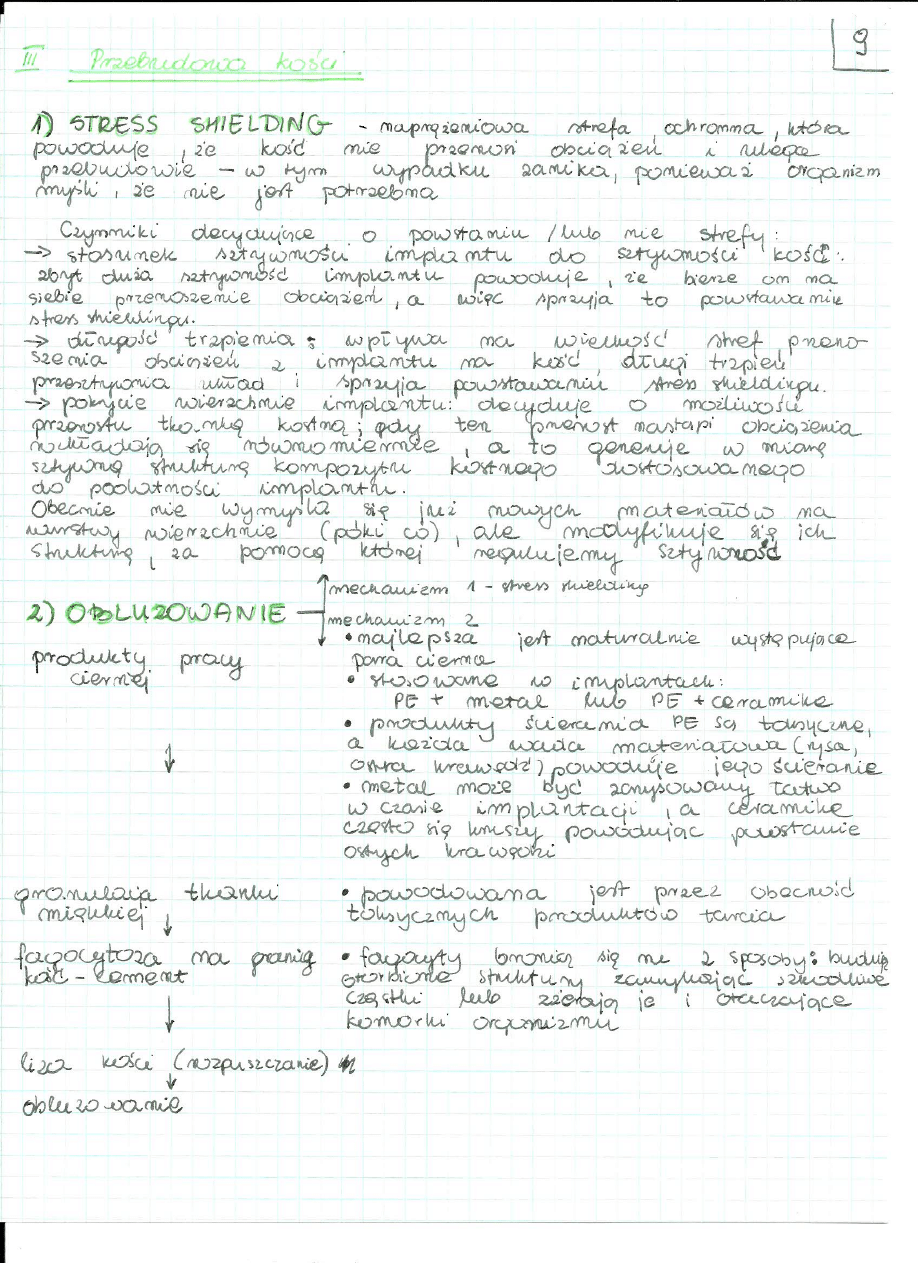 9
III Przebudowa kości
1) STRESS SHIELDING - naprężeniowa strefa ochronna, która
powoduje, że kość nie przenosi obciążeń i ulega
przebudowie - w tym wypadku zanika, ponieważ organizm
myśli, że nie jest potrzebna
Czynniki decydujące o powstaniu / lub nie strefy:
→ stosunek sztywności implantu do sztywności kości:
zbyt duża sztywność implantu powoduje, że bierze on na
siebie przenoszenie obciążeń, a więc sprzyja to powstawaniu
stress shieldingu.
→ długość trzpienia: wpływa na wielkość stref przeno-
szenia obciążeń z implantu na kość, długi trzpień
przesztywnia układ i sprzyja powstawaniu stress shieldingu.
→ pokrycie wierzchnie implantu: decyduje o możliwości
przerostu tkanką kostną; gdy ten przerost nastąpi obciążenia
rozkładają się równomiernie, a to generuje w miarę
sztywną strukturę kompozytu kostnego dostosowanego
do podatności implantu.
Obecnie nie wymyśla się już nowych materiałów na
warstwy wierzchnie (póki co), ale modyfikuje się ich
strukturę, za pomocą której regulujemy sztywność
2) OBLUZOWANIE
mechanizm 1 - stress shielding
mechanizm 2
• najlepsza jest naturalnie występująca
para cierna
produkty pracy
ciernej
• stosowane w implantach:
PE + metal lub PE + ceramika
• produkty ścierania PE są toksyczne,
a każda wada materiałowa (rysa,
ostra krawędź) powoduje jego ścieranie
• metal może być zarysowany łatwo
w czasie implantacji, a ceramika
często się kruszy powodując powstanie
ostrych krawędzi
↓
granulacja tkanki
miękkiej ↓
• powodowana jest przez obecność
toksycznych produktów tarcia
fagocytoza na granicy
kość - cement
• fagocyty bronią się na 2 sposoby: budują
otorbione struktury zamykając szkodliwe
cząstki lub zżerają je i otaczające
komórki organizmu
↓
liza kości (rozpuszczanie)
↓
obluzowanie